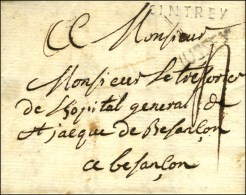 CINTREY
Monsieur
Monsieur Le tresorier
de lhopital general de
st jacque de Besançon
a besançon